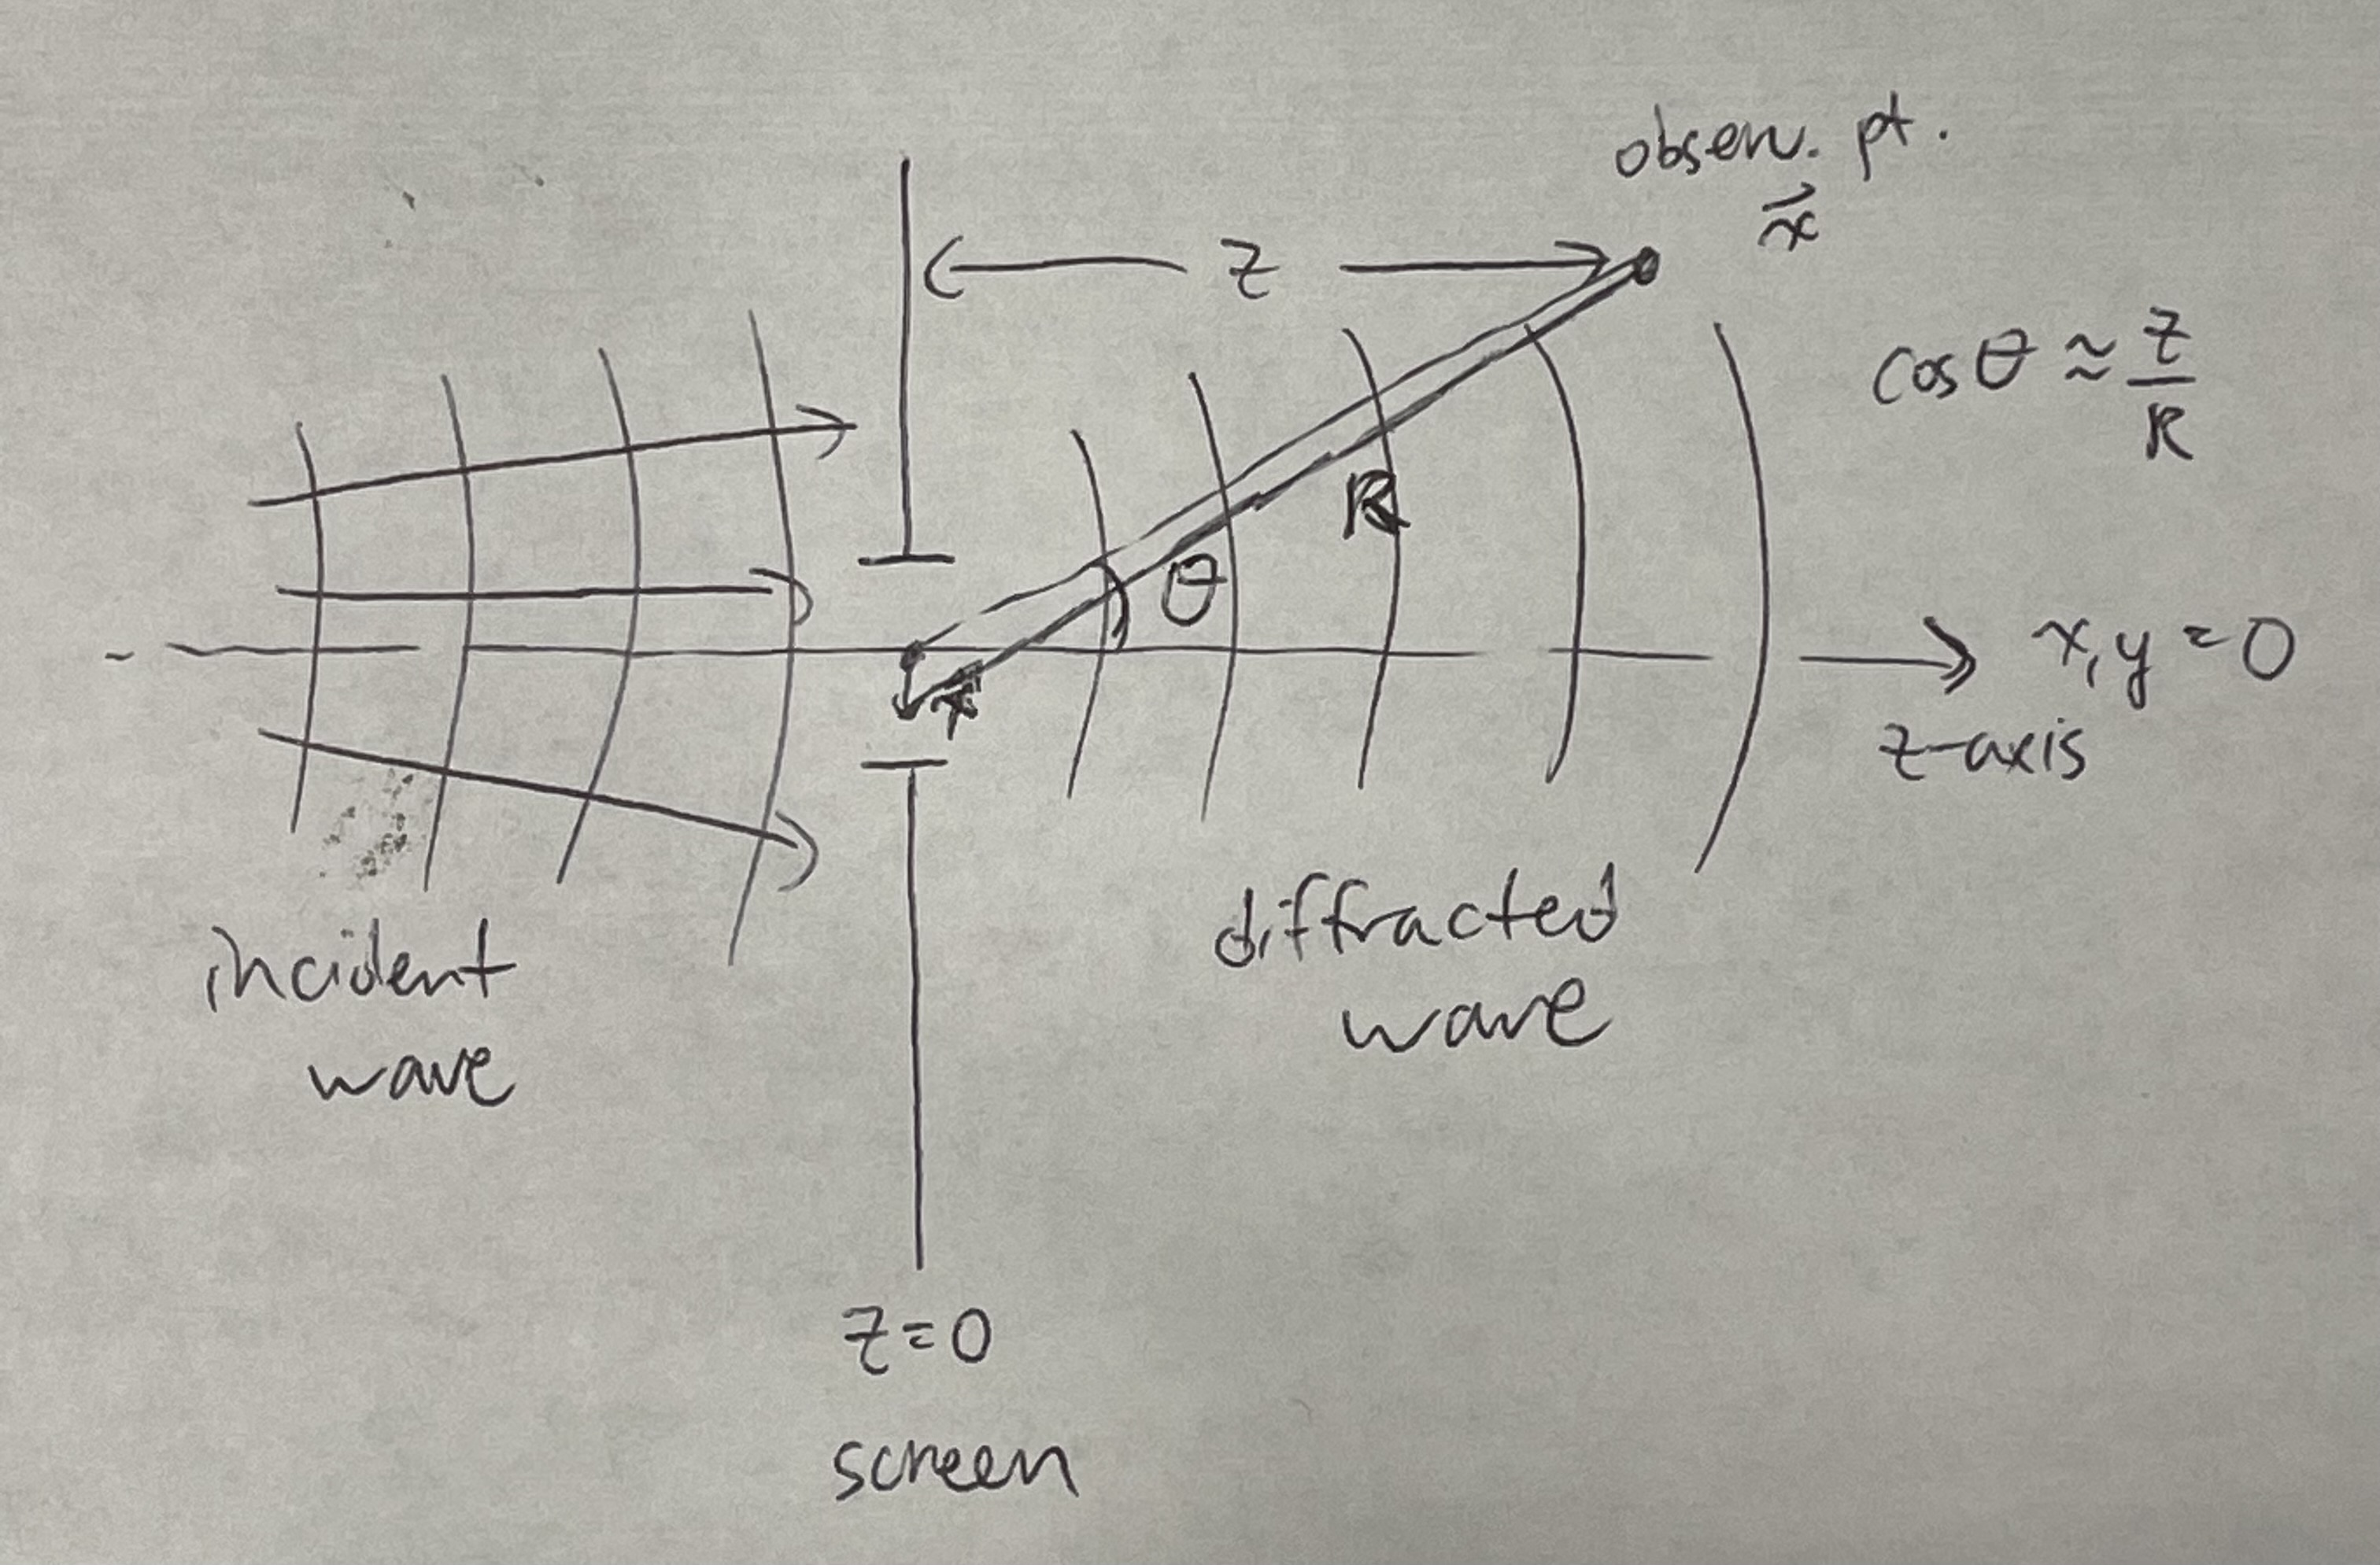 observ. pt.
x⃗
z
cos θ ≈ z/R
R
θ
x, y = 0
z-axis
incident
wave
diffracted
wave
z=0
screen